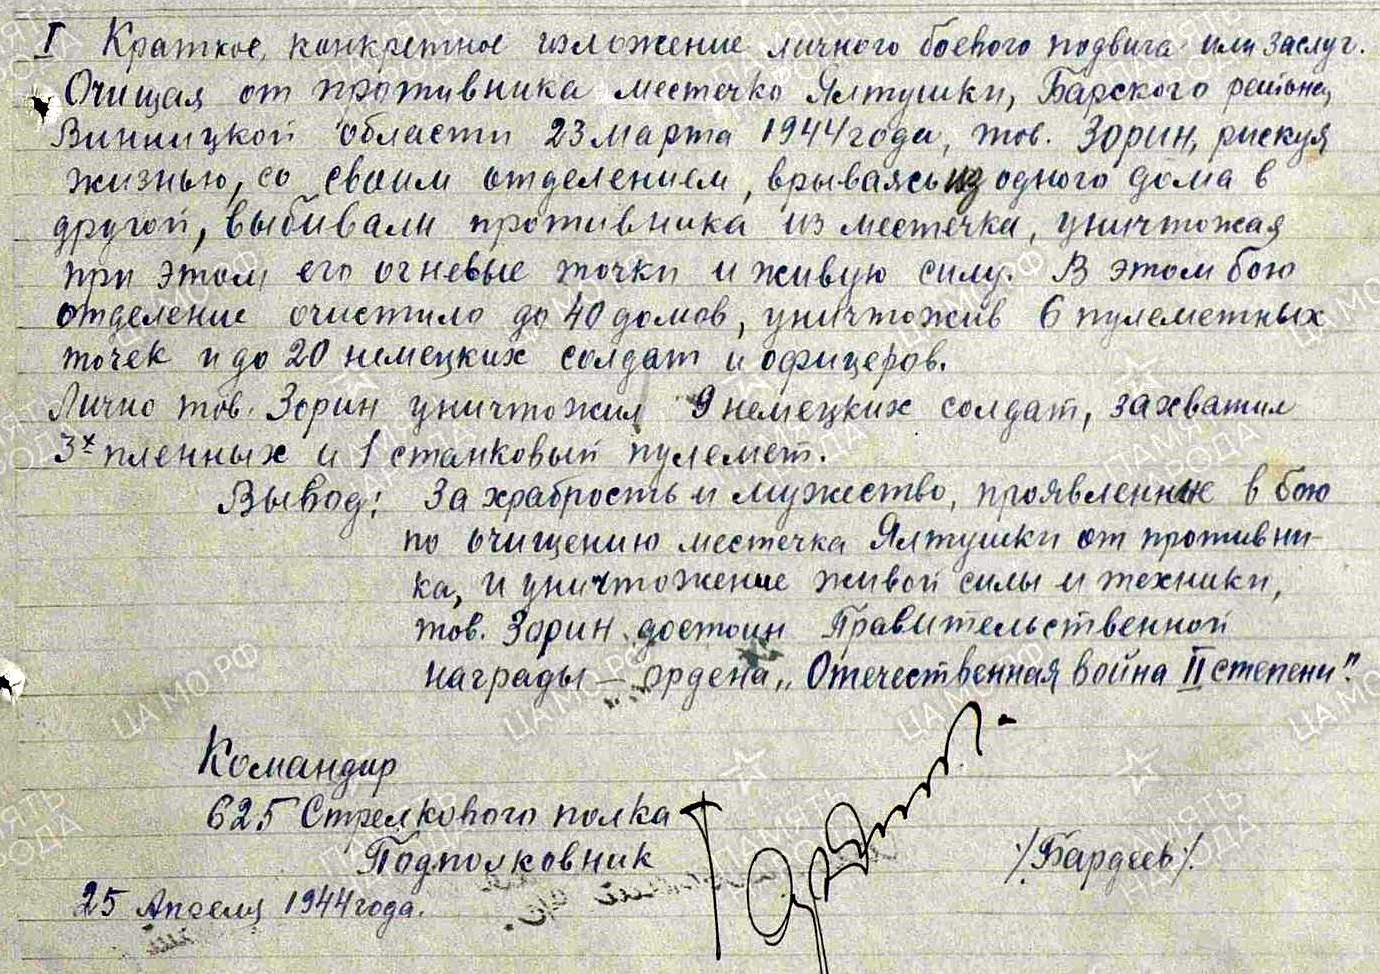 I Краткое, конкретное изложение личного боевого подвига или заслуг.
Очищая от противника местечко Ялтушки, Барского района,
Винницкой области 23 марта 1944 года, тов. Зорин, рискуя
жизнью, со своим отделением, врываясь из одного дома в
другой, выбивали противника из местечка, уничтожая
при этом его огневые точки и живую силу. В этом бою
отделение очистило до 40 домов, уничтожив 6 пулеметных
точек и до 20 немецких солдат и офицеров.
Лично тов. Зорин уничтожил 9 немецких солдат, захватил
3х пленных и 1 станковый пулемет.
Вывод: За храбрость и мужество, проявленные в бою
по очищению местечка Ялтушки от противни-
ка, и уничтожение живой силы и техники,
тов. Зорин достоин Правительственной
награды – ордена „Отечественная война II степени".
Командир
625 Стрелкового полка
Подполковник
/Бардеев/.
25 Апреля 1944 года.
ПАМЯТЬ НАРОДА
ЦАМО.РФ